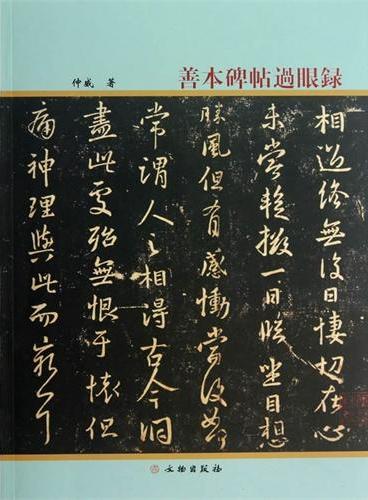 善本碑帖過眼録
仲威 著
相過終無復日悽切在心
未嘗暫撥一日臨坐目想
勝風但有感慟當復如何
常謂人之相得古今洞
盡此處殆無恨于懷但
痛神理與此而窮耳
文物出版社